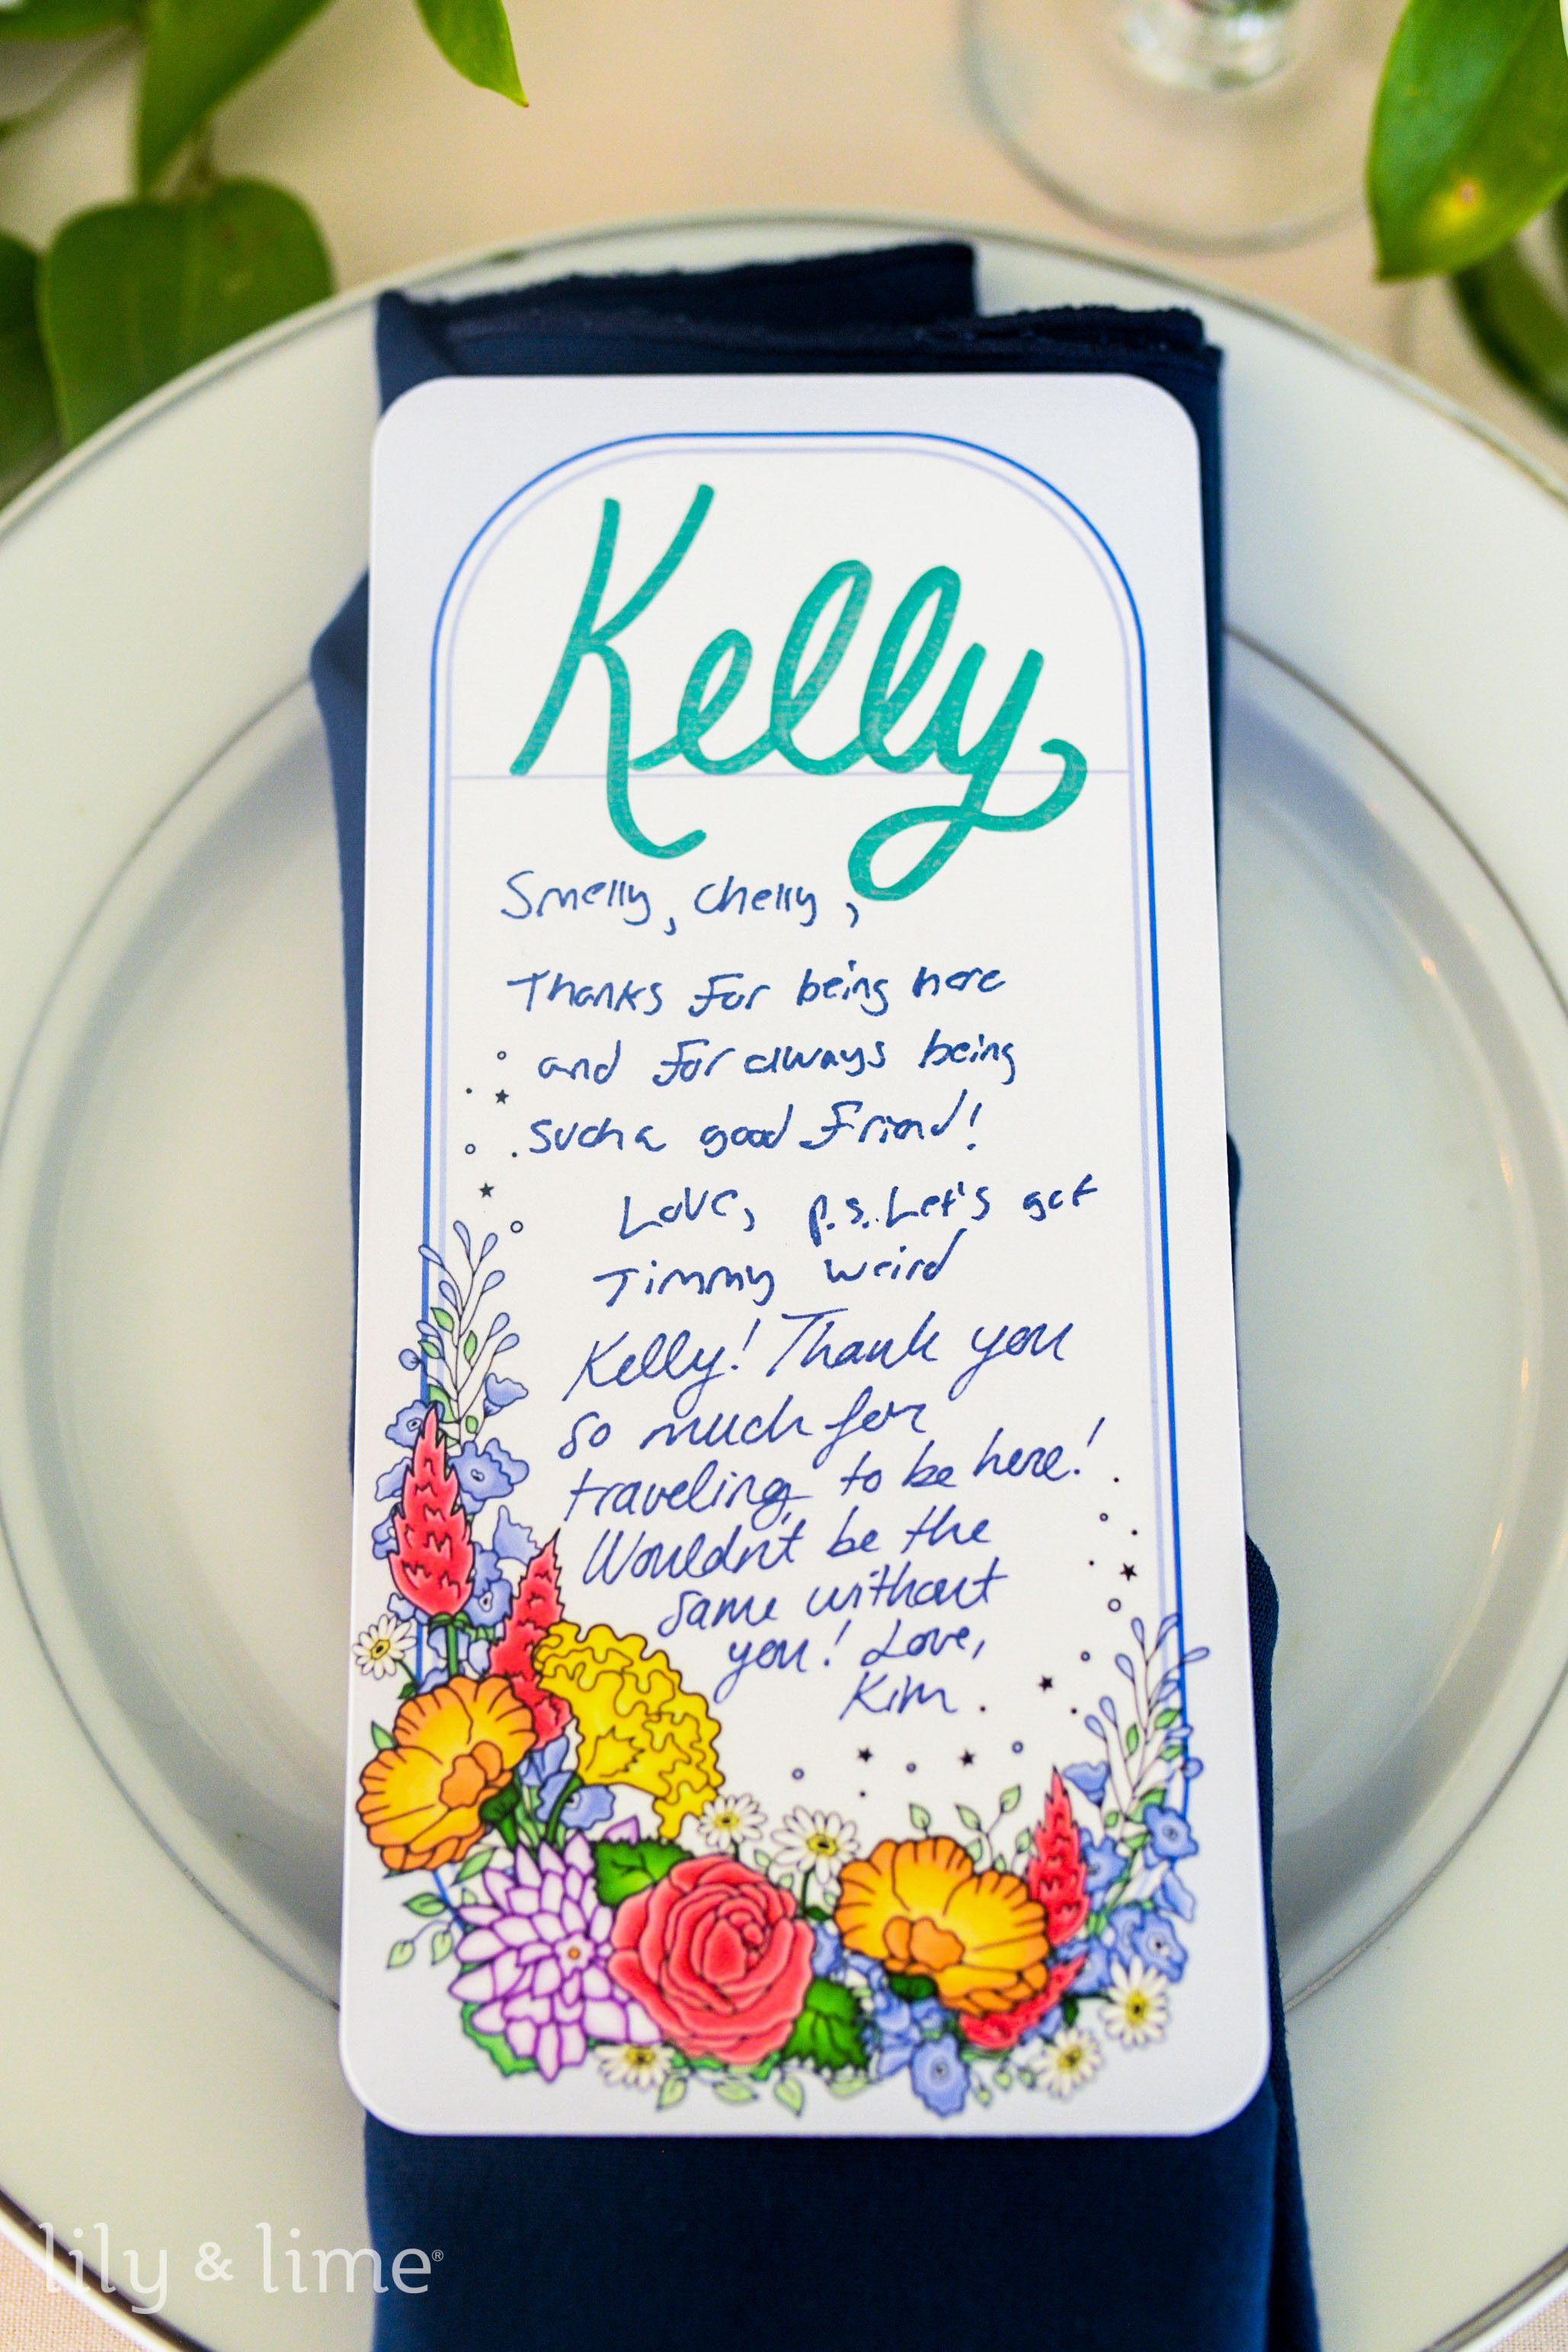 Kelly
Smelly, Chelly,
Thanks for being here
and for always being
such a good friend!
Love, p.s. Let's get
Timmy weird
Kelly! Thank you
so much for
traveling to be here!
Wouldn't be the
same without
you! Love,
Kim
lily & lime®